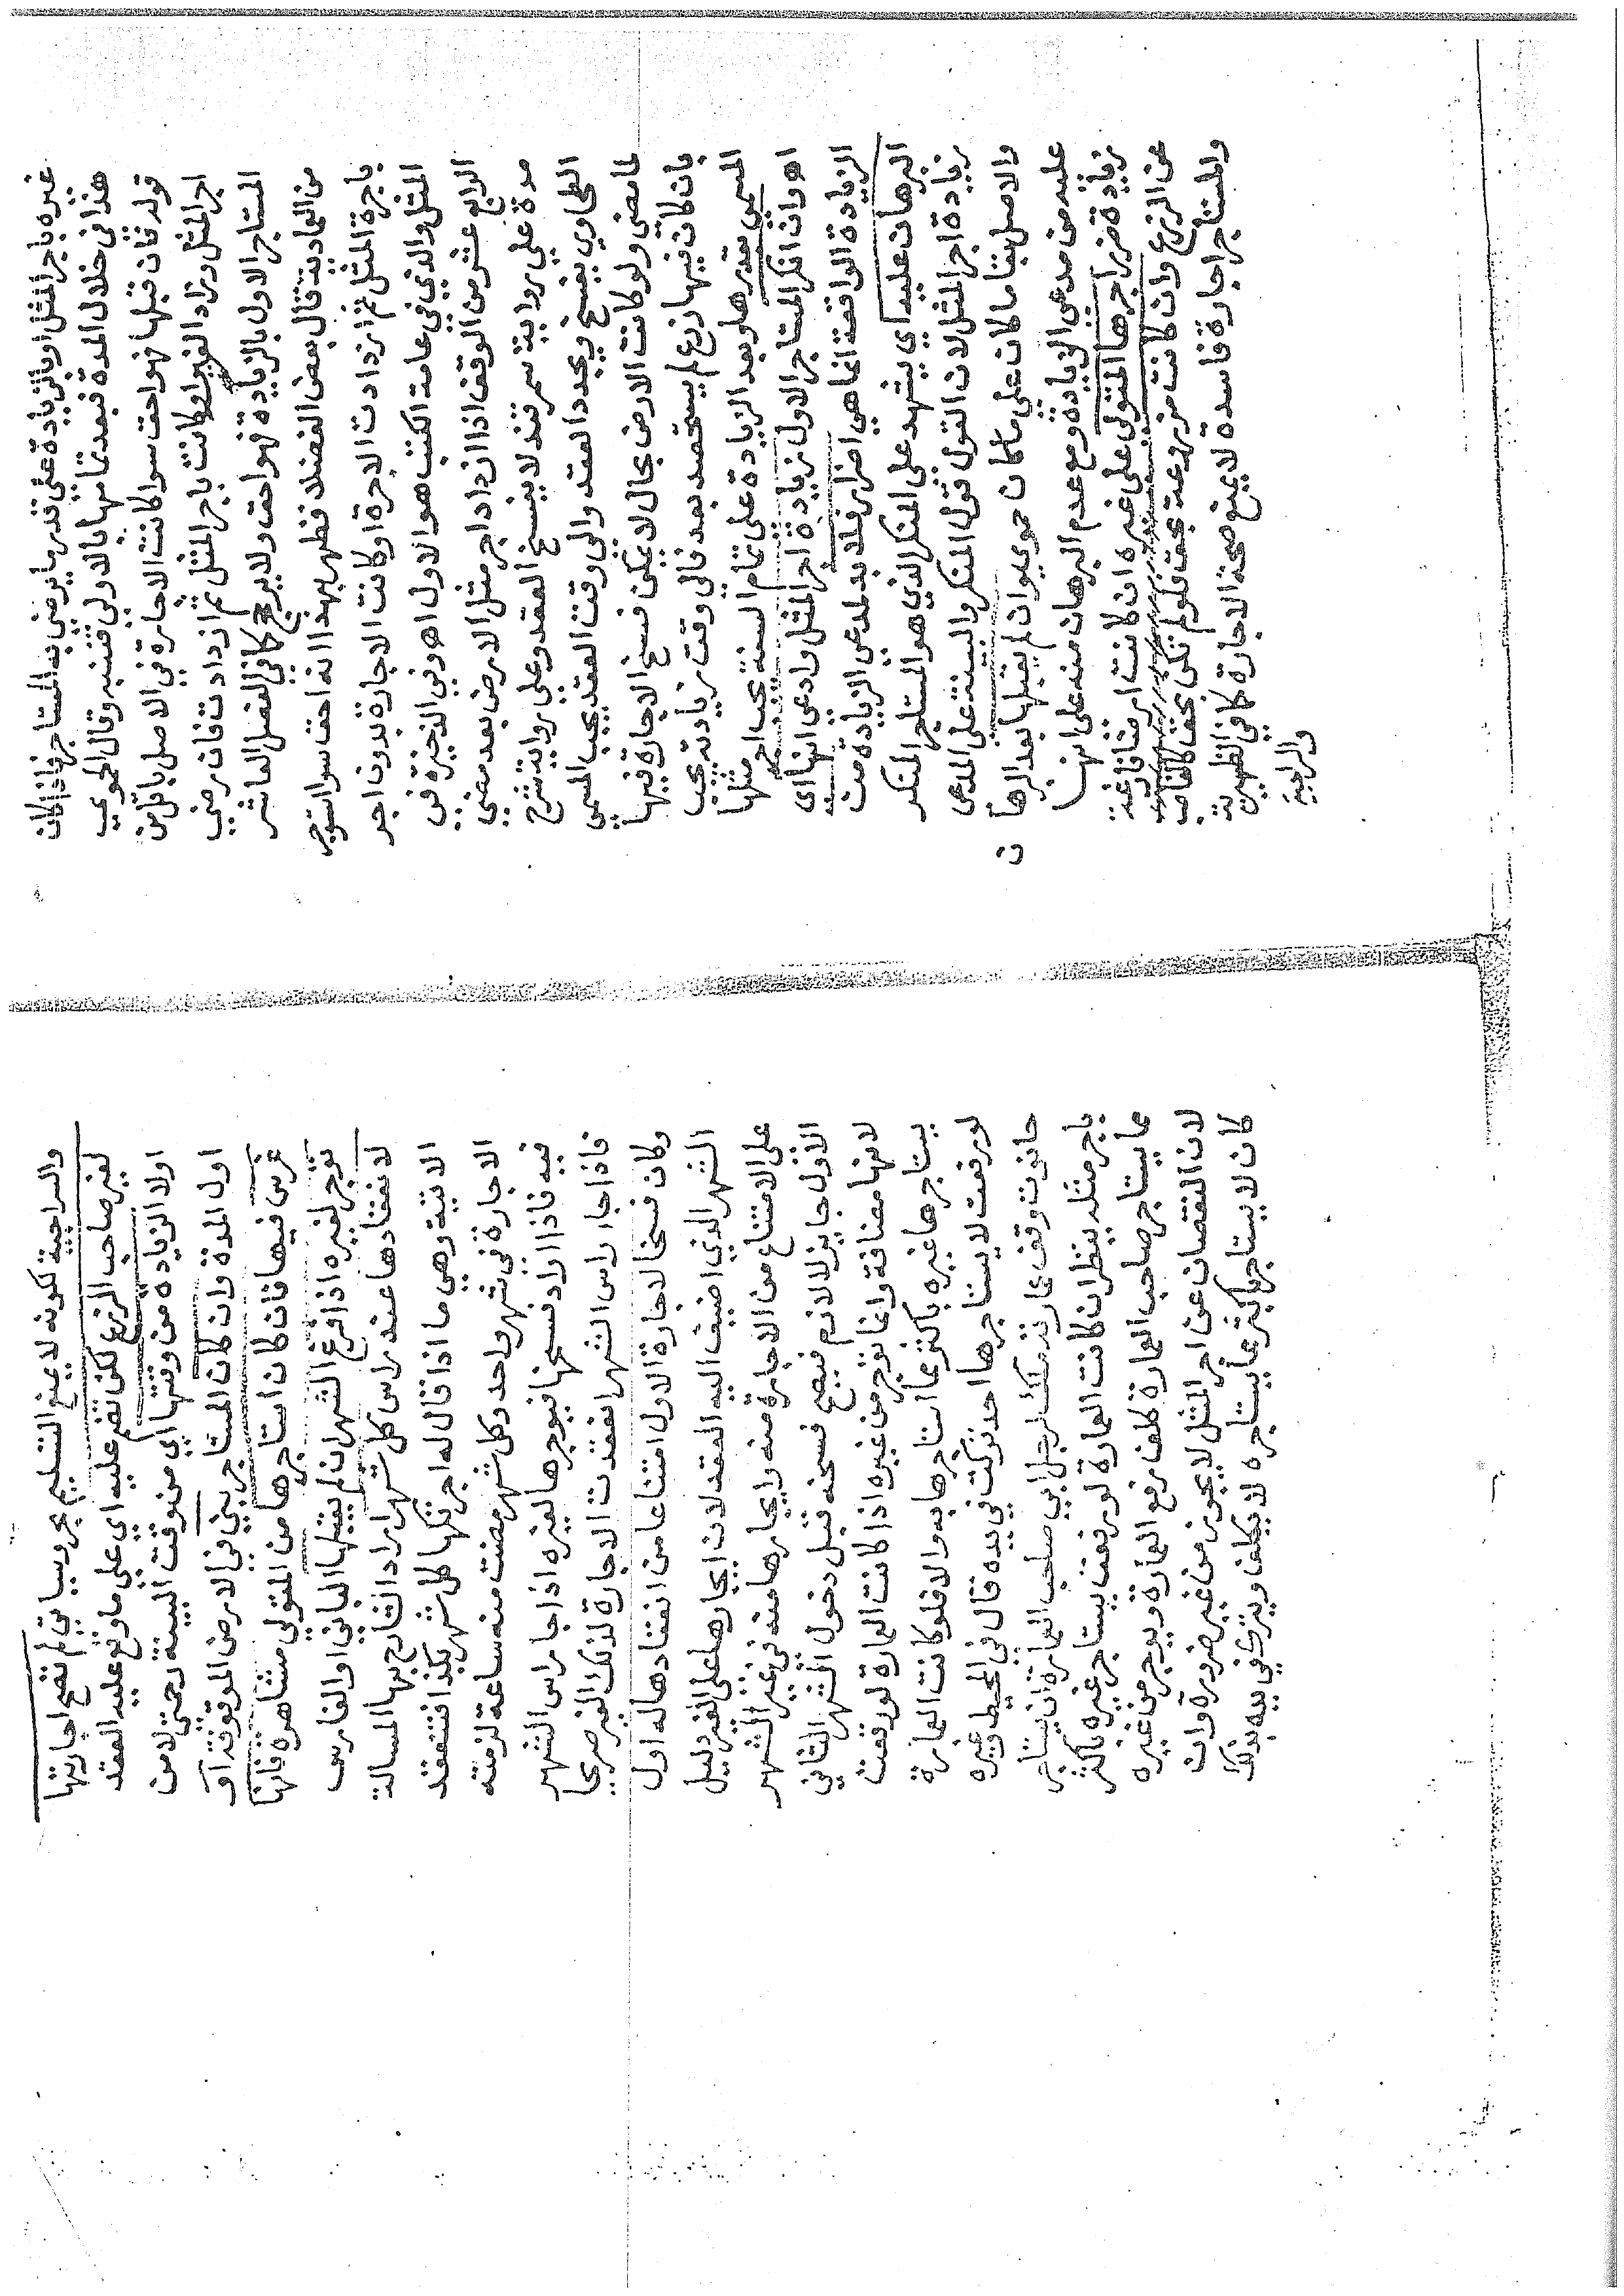 غيره باجر المثل او بالزيادة على قدر ما يرضى به المستاجر فاذا كان
هذا في خلال المدة فبعد تمامها بالاولى فتنبه وقال الحموي
قوله فان قبلها فهو احق سوا كانت الاجارة في الاصل باقل من
اجر المثل وزاد الغير او كانت باجر المثل ثم ازدادت فان رضي
المستاجر الاول بالزيادة فهو احق ولا يرجح كما في الفصل العاشر
من العمادية قال بعض الفضلا فظهر بهذا انه احق سوا استوجر
باجرة المثل ثم ازدادت الاجرة او كانت الاجارة بدون اجر
المثل والذي في عامة الكتب هو الاول اه وفي الذخيرة في
الرابع عشر من الوقف اذا ازداد اجر مثل الارض بعد مضي
مدة على رواية سمرقند لا يفسخ العقد وعلى رواية شرح
الطحاوي يفسخ ويجدد العقد والى وقت العقد يجب المسمى
لما مضى ولو كانت الارض بحال لا يمكن فسخ الاجارة فيها
بان كان فيها زرع لم يستحصد بعد فالى وقت زيادته يجب
المسمى بقدرها وبعد الزيادة على تمام السنة يجب اجر مثلها
اه وان انكر المستاجر الاول زيادة اجر المثل وادعى انها اي
الزيادة الواقعة انما هي اضرار فلا بد لمدعى الزيادة من
البرهان عليه اي يشهد على المنكر الذي هو المستاجر المنكر
زيادة اجر المثل لان القول قول المنكر والبينة على المدعى
والاصل بقا ما كان على ما كان حموي وان لم يقبلها بعد البرهان
عليه من مدعى الزيادة ومع عدم البرهان منه على انها
زيادة ضرر اجرها المتولي على غيره ان كانت ارضا فارغة
عن الزرع وان كانت مزروعة بحق فلو لم تكن بحق كالغاصب
والمستاجر اجارة فاسدة لا يمنع صحة الاجارة كما في الظهيرية
والسراجية
والسراجية لكونه لا يمنع التسليم بحر وسياتي لم تصح اجارتها
لغير صاحب الزرع لكن تضم عليه اي على ما وقع عليه العقد
اولا الزيادة من وقتها اي من وقت البينة رحمتي لا من
اول المدة وان كان المستاجر يبني في الارض الموقوفة او
غرس فيها فان كان استاجرها من المتولي مشاهرة فانها
توجر لغيره اذا فرغ الشهر ان لم يقبلها الباني او الغارس
لانعقادها عند راس كل شهر اراد الشارح بها المسالة
الاتية وهي ما اذا قال له اجرتكها كل شهر بكذا فتنعقد
الاجارة في شهر واحد وكل شهر مضت منه ساعة لزمته
فيه فاذا اراد فسخها فيوجرها لغيره اذا جا راس الشهر
فاذا جا راس الشهر انعقدت الاجارة لذلك الغير صريحا
وكان فسخا لاجارة الاول امتناعا من انعقادها له اول
الشهر الذي اضيف اليه العقد لان ايجارها على الغير دليل
على الامتناع من الاجارة منه وايجارها منه في غير الشهر
الاول جايز لا لازم فيصح فسخه قبل دخول الشهر الثاني
لانها مضافة وانما توجر من غيره اذا كانت العمارة لو رفعت
يستاجرها غيره باكثر مما استاجرها به والا فلو كانت العمارة
لو رفعت لا يستاجرها احد تركت في يده قال في المحيط وغيره
حانوت وقف عمارته ملك لرجل ابى صاحب العمارة ان يستاجر
باجر مثله ينظر ان كانت العمارة لو رفعت يستاجر غيره باكثر
مما يستاجر صاحب العمارة كلف رفع العمارة ويوجر من غيره
لان النقصان عن اجر المثل لا يجوز من غير ضرورة وان
كان لا يستاجر باكثر مما يستاجره لا يكلف ويترك في يده بذلك